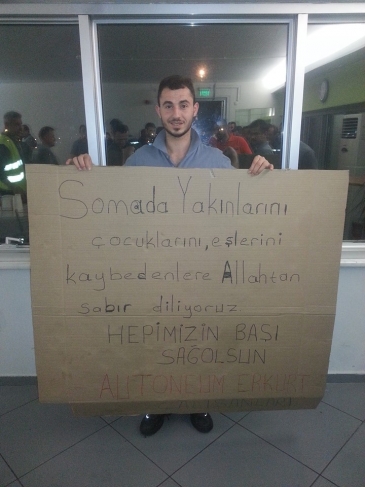 Somada Yakınlarını
çocuklarını, eşlerini
kaybedenlere Allahtan
sabır diliyoruz
HEPİMİZİN BAŞI
SAĞOLSUN
AUTONEUM ERKURT